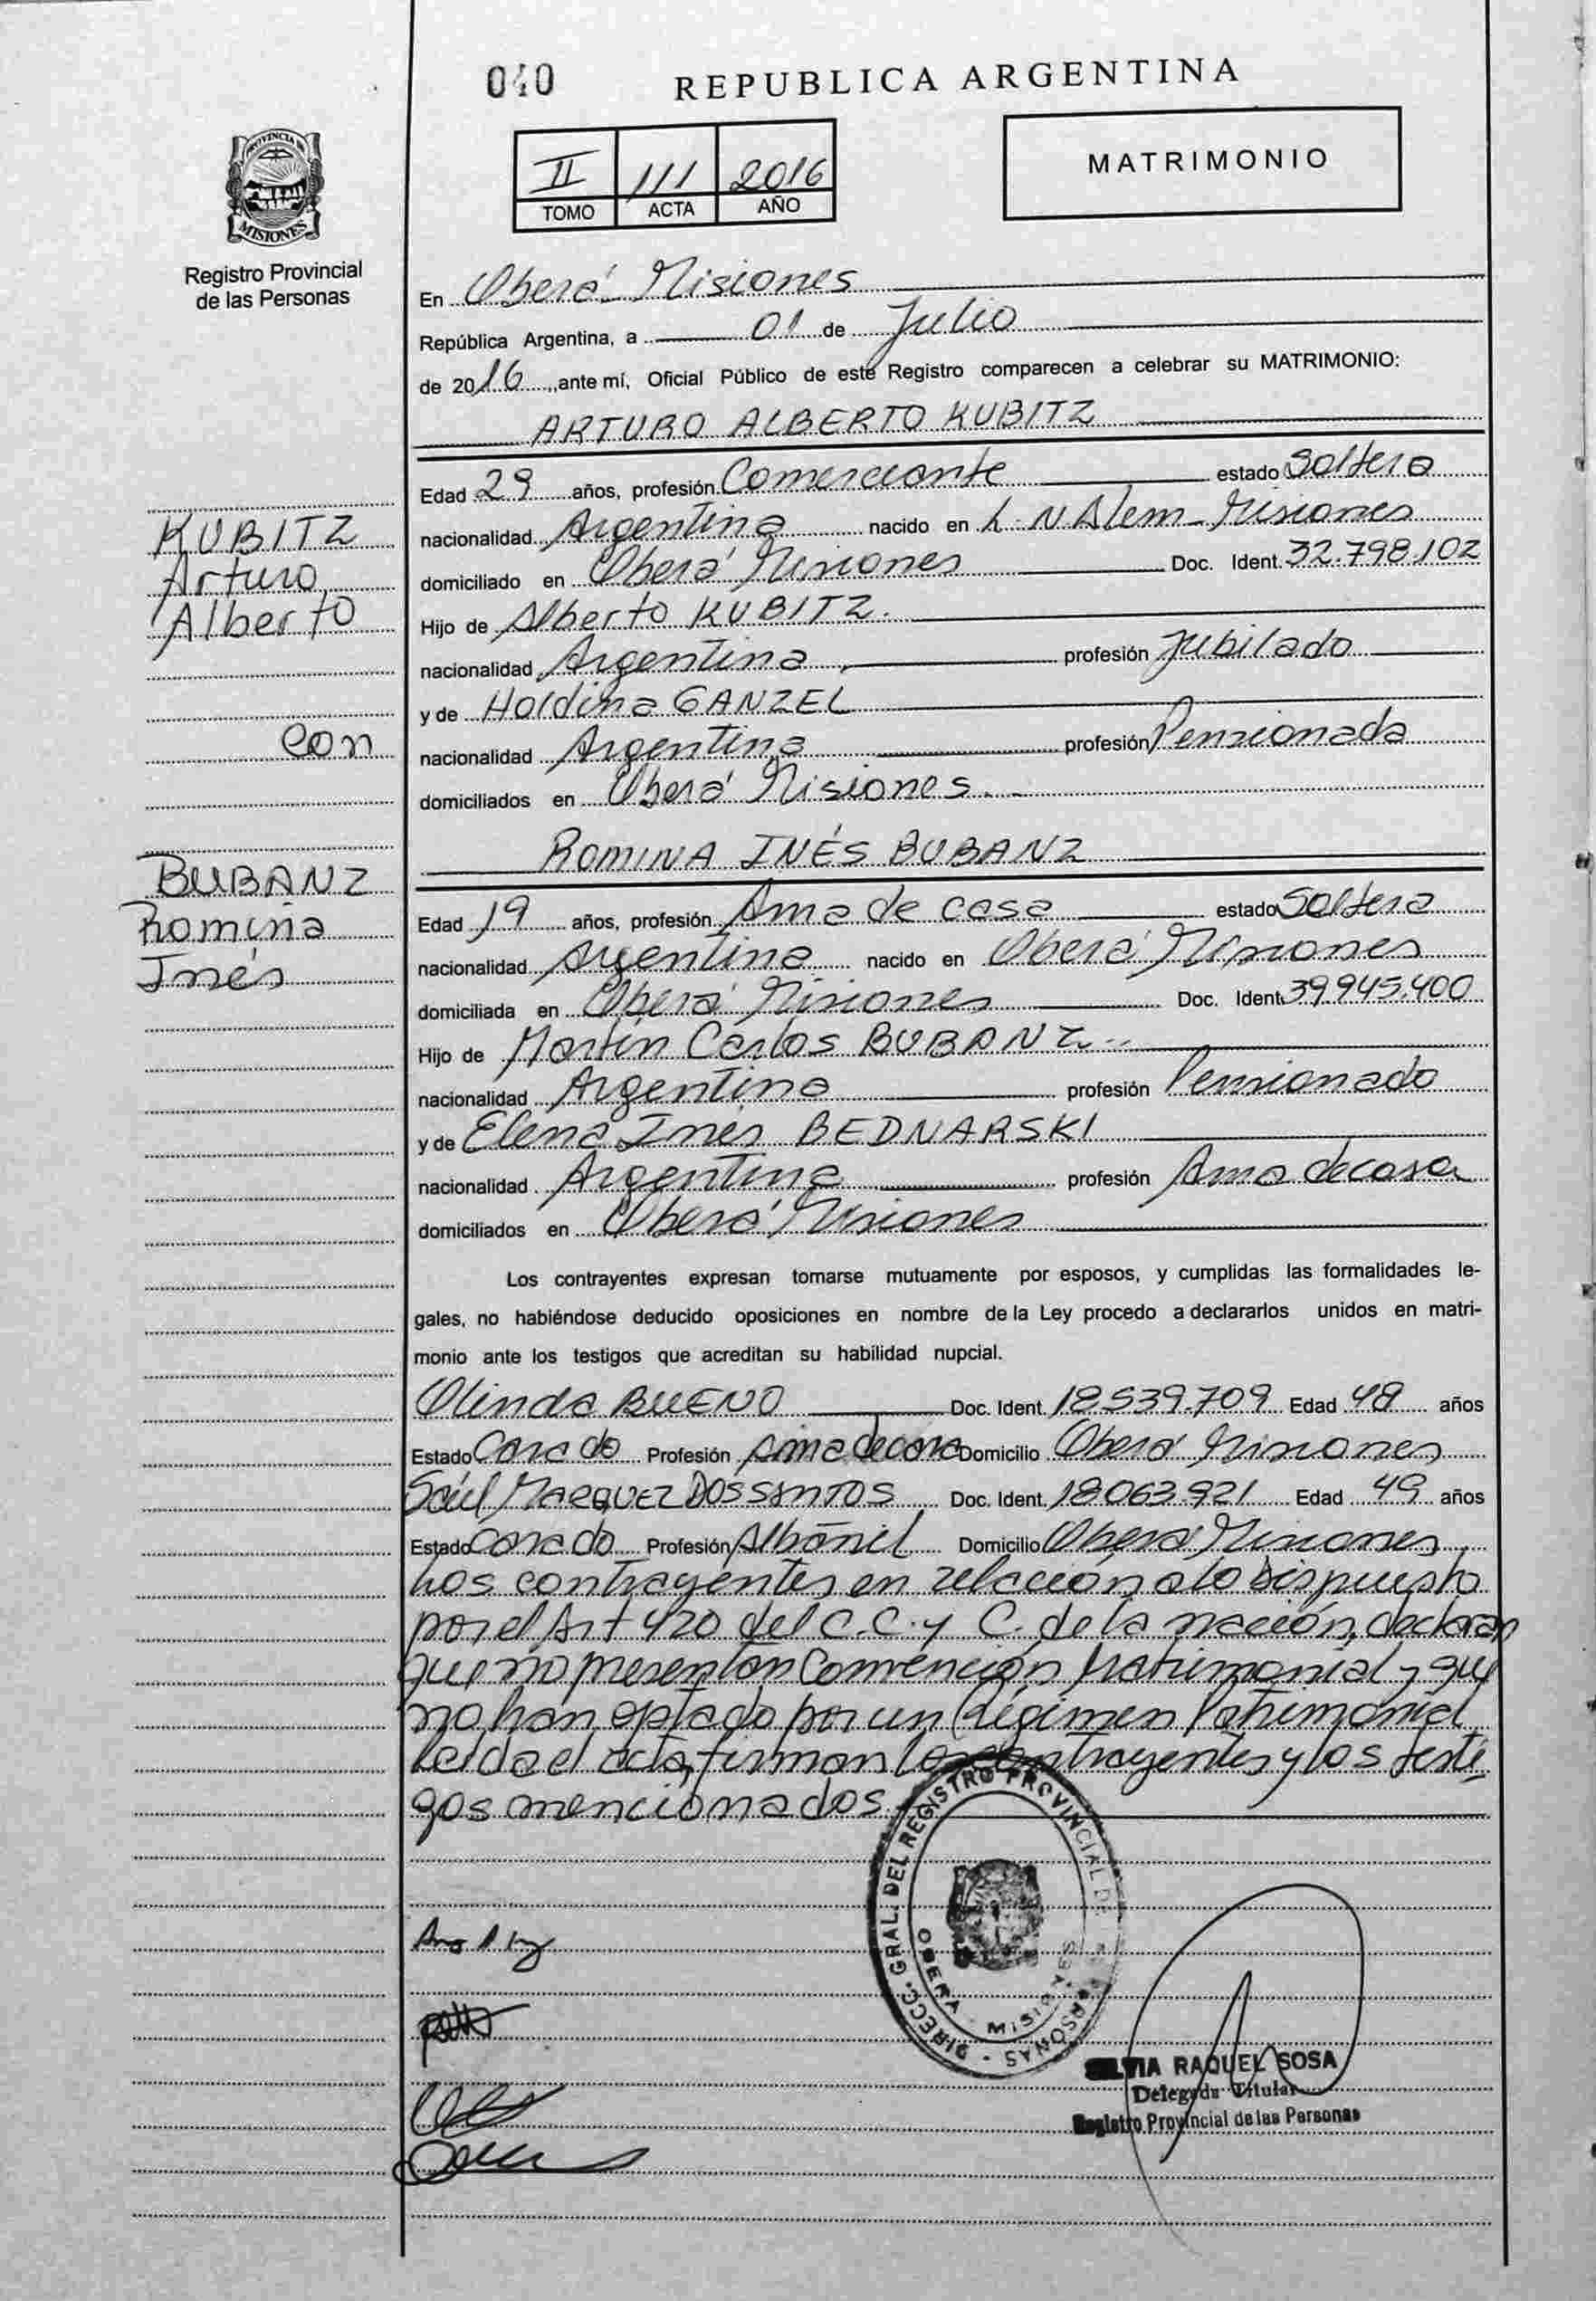 040
REPUBLICA ARGENTINA
II 111 2016
TOMO ACTA AÑO
MATRIMONIO
PROVINCIA DE
MISIONES
Registro Provincial
de las Personas
En Oberá Misiones
República Argentina, a 01 de Julio
de 2016, ante mí, Oficial Público de este Registro comparecen a celebrar su MATRIMONIO:
ARTURO ALBERTO KUBITZ
Edad 29 años, profesión Comerciante estado Soltero
nacionalidad Argentina nacido en L. N Alem - Misiones
domiciliado en Oberá Misiones Doc. Ident. 32.798.102
Hijo de Alberto KUBITZ.
nacionalidad Argentina profesión Jubilado
y de Holdina GANZEL
nacionalidad Argentina profesión Pensionada
domiciliados en Oberá Misiones.
KUBITZ
Arturo
Alberto
con
BUBANZ
Romina
Inés
ROMINA INÉS BUBANZ
Edad 19 años, profesión Ama de casa estado Soltera
nacionalidad Argentina nacido en Oberá Misiones
domiciliada en Oberá Misiones Doc. Ident. 39.945.400
Hijo de Martín Carlos BUBANZ
nacionalidad Argentina profesión Pensionado
y de Elena Inés BEDNARSKI
nacionalidad Argentina profesión Ama de casa
domiciliados en Oberá Misiones
Los contrayentes expresan tomarse mutuamente por esposos, y cumplidas las formalidades le-
gales, no habiéndose deducido oposiciones en nombre de la Ley procedo a declararlos unidos en matri-
monio ante los testigos que acreditan su habilidad nupcial.
Olinda BUENO Doc. Ident. 18.539.709 Edad 48 años
Estado Casado Profesión Ama de casa Domicilio Oberá Misiones
Saúl MARQUEZ DOS SANTOS Doc. Ident. 18.063.921 Edad 49 años
Estado Casado Profesión Albañil Domicilio Oberá Misiones
Los contrayentes en relación a lo dispuesto
por el Art 420 del C.C. y C. de la nación, declaran
que no presentan Convención Matrimonial y que
no han optado por un Régimen Patrimonial
Leida el acta, firman los contrayentes y los testi-
gos mencionados.
DIRECC. GRAL. DEL REGISTRO PROVINCIAL DE PERSONAS
OBERA - MISIONES
SILVIA RAQUEL SOSA
Delegada Titular
Registro Provincial de las Personas